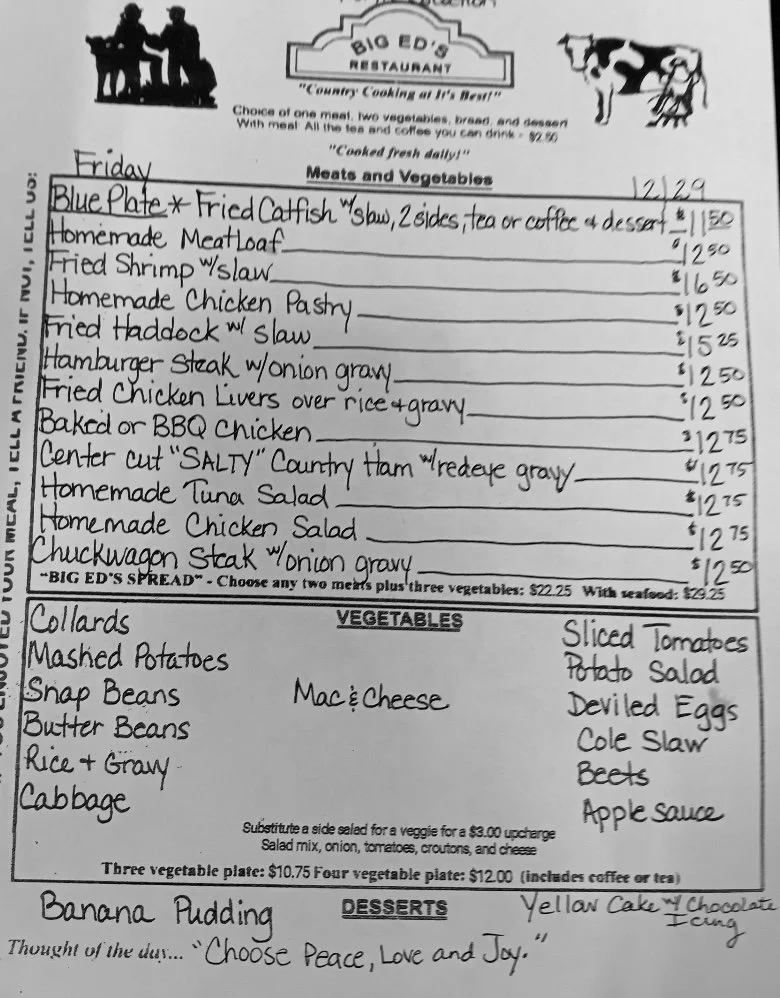 BIG ED'S
RESTAURANT
"Country Cooking at It's Best!"
Choice of one meat, two vegetables, bread, and dessert
With meal All the tea and coffee you can drink - $2.50
"Cooked fresh daily!"
Friday Meats and Vegetables 12/29
Blue Plate * Fried Catfish w/slaw, 2 sides, tea or coffee & dessert $11.50
Homemade Meatloaf $12.50
Fried Shrimp w/slaw $16.50
Homemade Chicken Pastry $12.50
Fried Haddock w/ slaw $15.25
Hamburger Steak w/onion gravy $12.50
Fried Chicken Livers over rice & gravy $12.50
Baked or BBQ Chicken $12.75
Center cut "SALTY" Country Ham w/redeye gravy $12.75
Homemade Tuna Salad $12.75
Homemade Chicken Salad $12.75
Chuckwagon Steak w/onion gravy $12.50
"BIG ED'S SPREAD" - Choose any two meats plus three vegetables: $22.25 With seafood: $29.25
VEGETABLES
Collards
Mashed Potatoes
Snap Beans
Butter Beans
Rice + Gravy
Cabbage
Mac & Cheese
Sliced Tomatoes
Potato Salad
Deviled Eggs
Cole Slaw
Beets
Apple Sauce
Substitute a side salad for a veggie for a $3.00 upcharge
Salad mix, onion, tomatoes, croutons, and cheese
Three vegetable plate: $10.75 Four vegetable plate: $12.00 (includes coffee or tea)
DESSERTS
Banana Pudding
Yellow Cake w/ Chocolate
Icing
Thought of the day... "Choose Peace, Love and Joy."
YOU ENJOYED YOUR MEAL, TELL A FRIEND. IF NOT, TELL US: